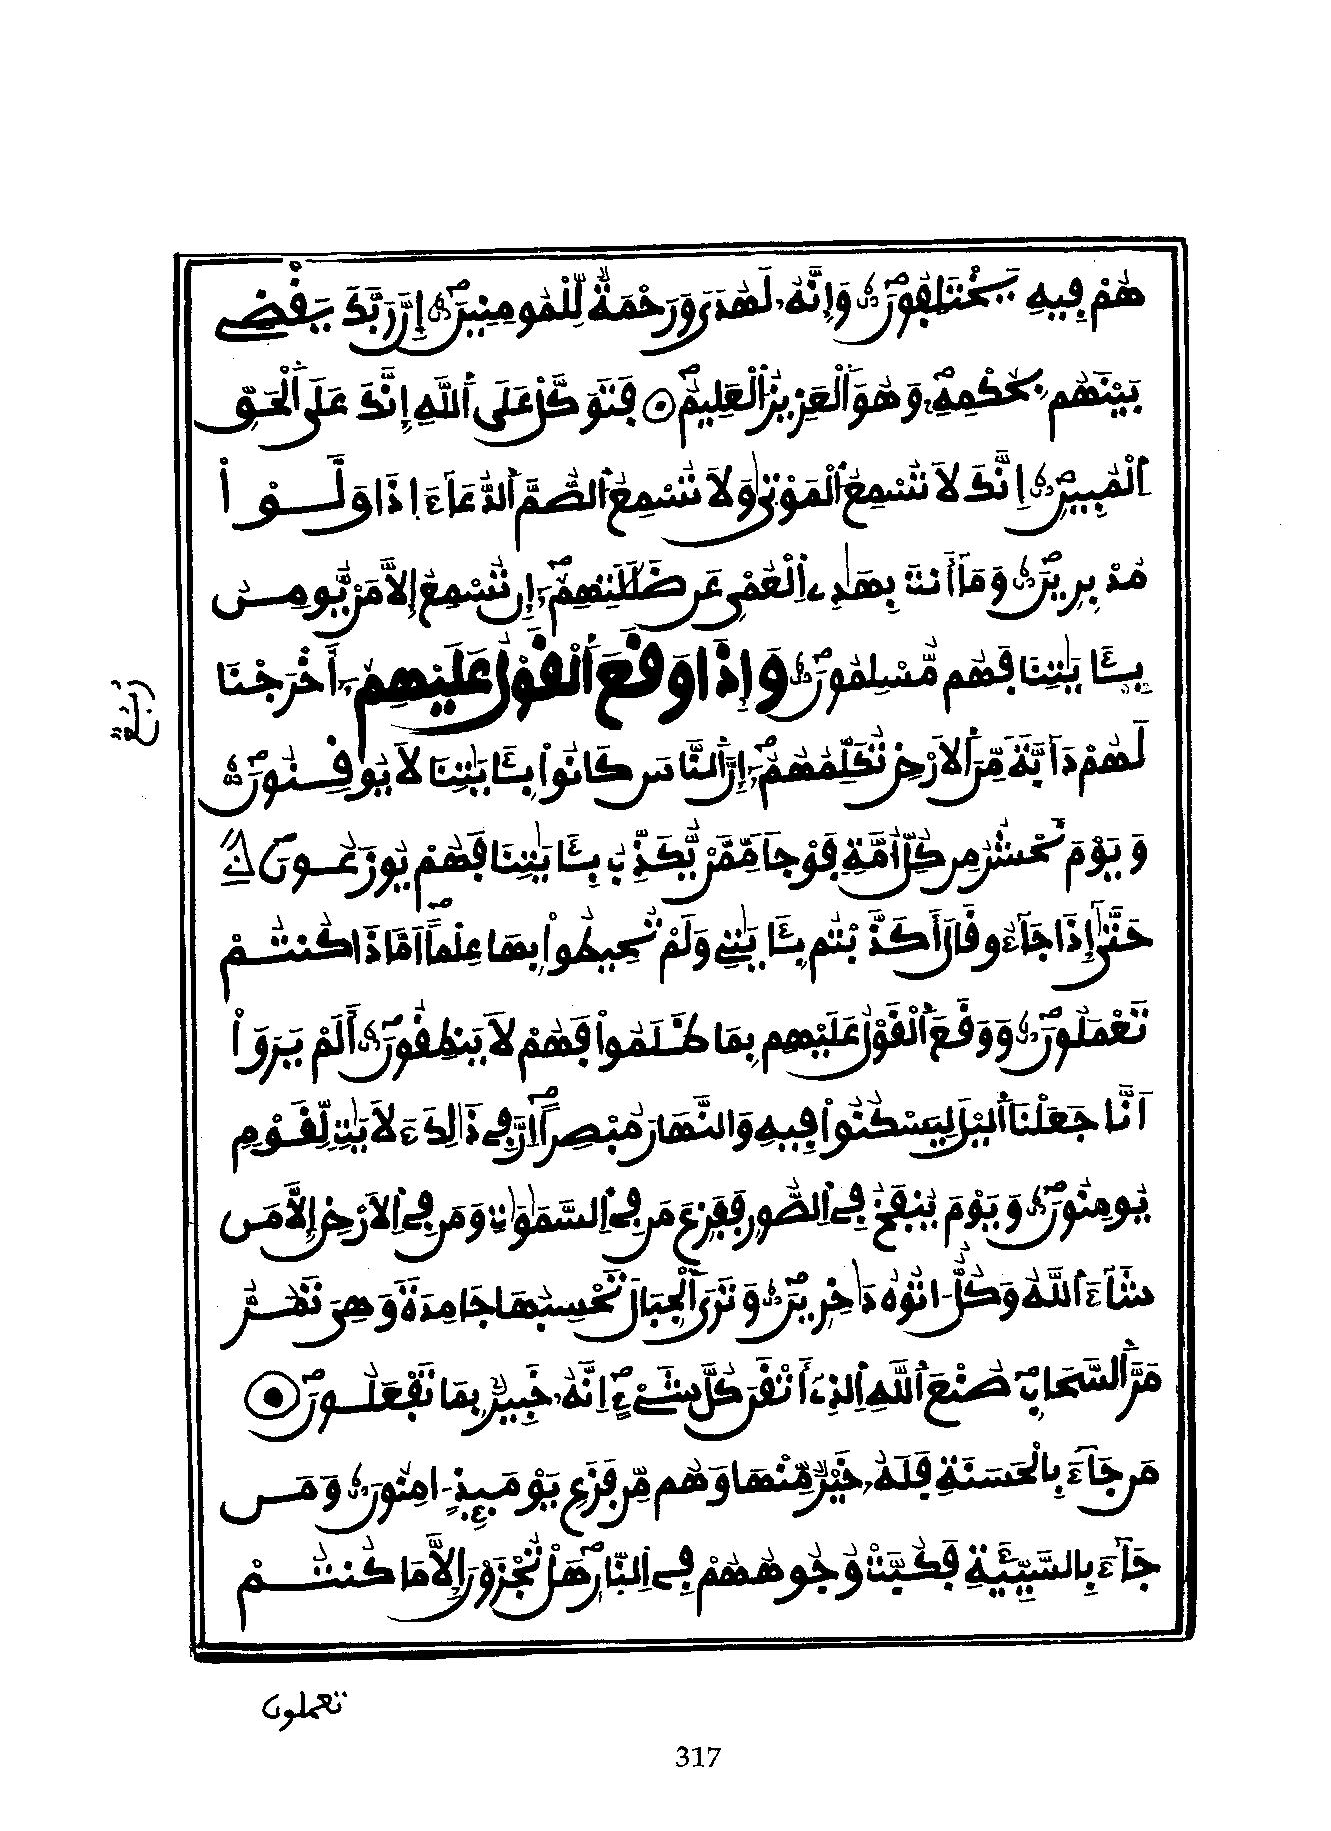 هُمْ فِيهِ يَخْتَلِفُونَ وَإِنَّهُۥ لَهُدىً وَرَحْمَةٌ لِّلْمُومِنِينَ إِنَّ رَبَّكَ يَقْضِے
بَيْنَهُم بِحُكْمِهِۦ وَهُوَ اَ۬لْعَزِيزُ اُ۬لْعَلِيمُ فَتَوَكَّلْ عَلَى اَ۬للَّهِ إِنَّكَ عَلَى اَ۬لْحَقِّ
اِ۬لْمُبِينِ إِنَّكَ لَا تُسْمِعُ اُ۬لْمَوْتٰى وَلَا تُسْمِعُ اُ۬لصُّمَّ اَ۬لدُّعَآءَ اِذَا وَلَّوْا
مُدْبِرِينَ وَمَآ أَنتَ بِهَٰدِے اِ۬لْعُمْيِ عَن ضَلَٰلَتِهِمُۥٓ إِن تُسْمِعُ إِلَّا مَنْ يُّومِن
بِـَٔايَٰتِنَا فَهُم مُّسْلِمُونَ وَإِذَا وَقَعَ اَ۬لْقَوْلُ عَلَيْهِمُۥٓ أَخْرَجْنَا
لَهُمْ دَآبَّةً مِّنَ اَ۬لَارْضِ تُكَلِّمُهُمُۥٓ إِنَّ اَ۬لنَّاسَ كَانُوا۟ بِـَٔايَٰتِنَا لَا يُوقِنُونَ
وَيَوْمَ نَحْشُرُ مِن كُلِّ أُمَّةٍ فَوْجاً مِّمَّنْ يُّكَذِّبُ بِـَٔايَٰتِنَا فَهُمْ يُوزَعُونَ
حَتَّىٰٓ إِذَا جَآءُو قَالَ أَكَذَّبْتُم بِـَٔايَٰتِے وَلَمْ تُحِيطُوا۟ بِهَا عِلْماً اَمَّا ذَا كُنتُمْ
تَعْمَلُونَ وَوَقَعَ اَ۬لْقَوْلُ عَلَيْهِم بِمَا ظَلَمُوا۟ فَهُمْ لَا يَنطِقُونَ أَلَمْ يَرَوَا۟
اَنَّا جَعَلْنَا اَ۬ليْلَ لِيَسْكُنُوا۟ فِيهِ وَالنَّهَارَ مُبْصِراً اِنَّ فِے ذَٰلِكَ ءَلَايَٰتٍ لِّقَوْمٍ
يُومِنُونَ وَيَوْمَ يُنفَخُ فِے اِ۬لصُّورِ فَفَزِعَ مَن فِے اِ۬لسَّمَٰوَٰتِ وَمَن فِے اِ۬لَارْضِ إِلَّا مَن
شَآءَ اَ۬للَّهُ وَكُلٌّ اٰتُوهُ دَٰخِرِينَ وَتَرَى اَ۬لْجِبَالَ تَحْسِبُهَا جَامِدَةً وَهِىَ تَمُرُّ
مَرَّ اَ۬لسَّحَابِ صُنْعَ اَ۬للَّهِ اِ۬لذِےٓ أَتْقَنَ كُلَّ شَےْءٍ اِنَّهُۥ خَبِيرٌ بِمَا تَفْعَلُونَ
مَن جَآءَ بِالْحَسَنَةِ فَلَهُۥ خَيْرٌ مِّنْهَا وَهُم مِّن فَزَعِ يَوْمَئِذٍ اٰمِنُونَ وَمَن
جَآءَ بِالسَّيِّئَةِ فَكُبَّتْ وُجُوهُهُمْ فِے اِ۬لنّ۪ارِ هَلْ تُجْزَوْنَ إِلَّا مَا كُنتُمْ
تعملون
317